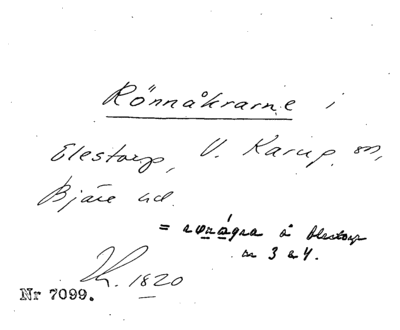 Rönnåkrarne i
Elestorp, V. Karup sn,
Bjäre hd.
= rönågra å Elestorp
nr 3 o 4.
Lk. 1820
Nr 7099.